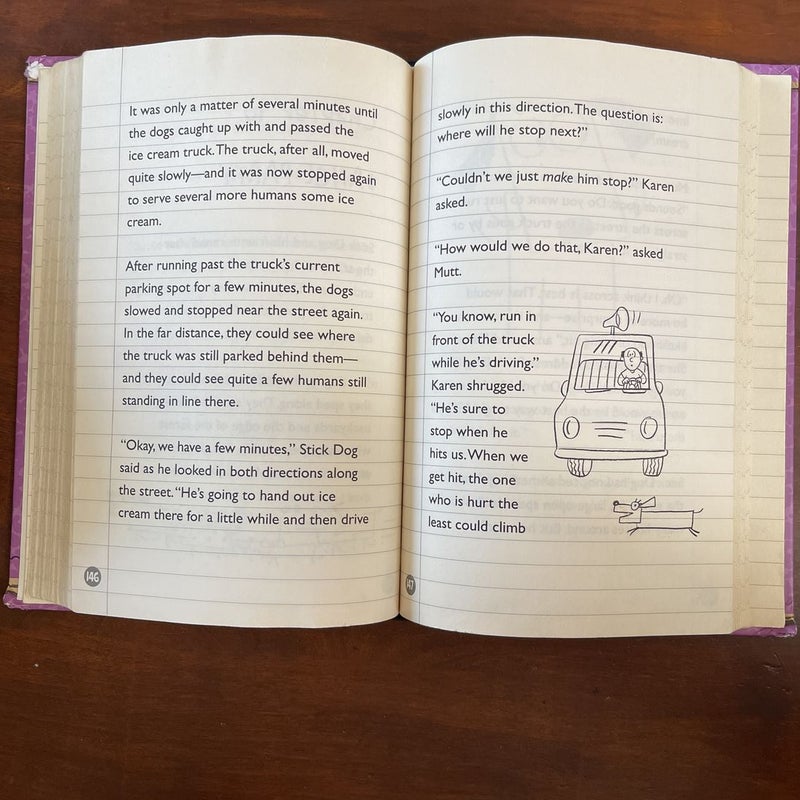 It was only a matter of several minutes until
the dogs caught up with and passed the
ice cream truck. The truck, after all, moved
quite slowly—and it was now stopped again
to serve several more humans some ice
cream.
After running past the truck's current
parking spot for a few minutes, the dogs
slowed and stopped near the street again.
In the far distance, they could see where
the truck was still parked behind them—
and they could see quite a few humans still
standing in line there.
"Okay, we have a few minutes," Stick Dog
said as he looked in both directions along
the street. "He's going to hand out ice
cream there for a little while and then drive
146
slowly in this direction. The question is:
where will he stop next?"
"Couldn't we just make him stop?" Karen
asked.
"How would we do that, Karen?" asked
Mutt.
"You know, run in
front of the truck
while he's driving."
Karen shrugged.
"He's sure to
stop when he
hits us. When we
get hit, the one
who is hurt the
least could climb
147